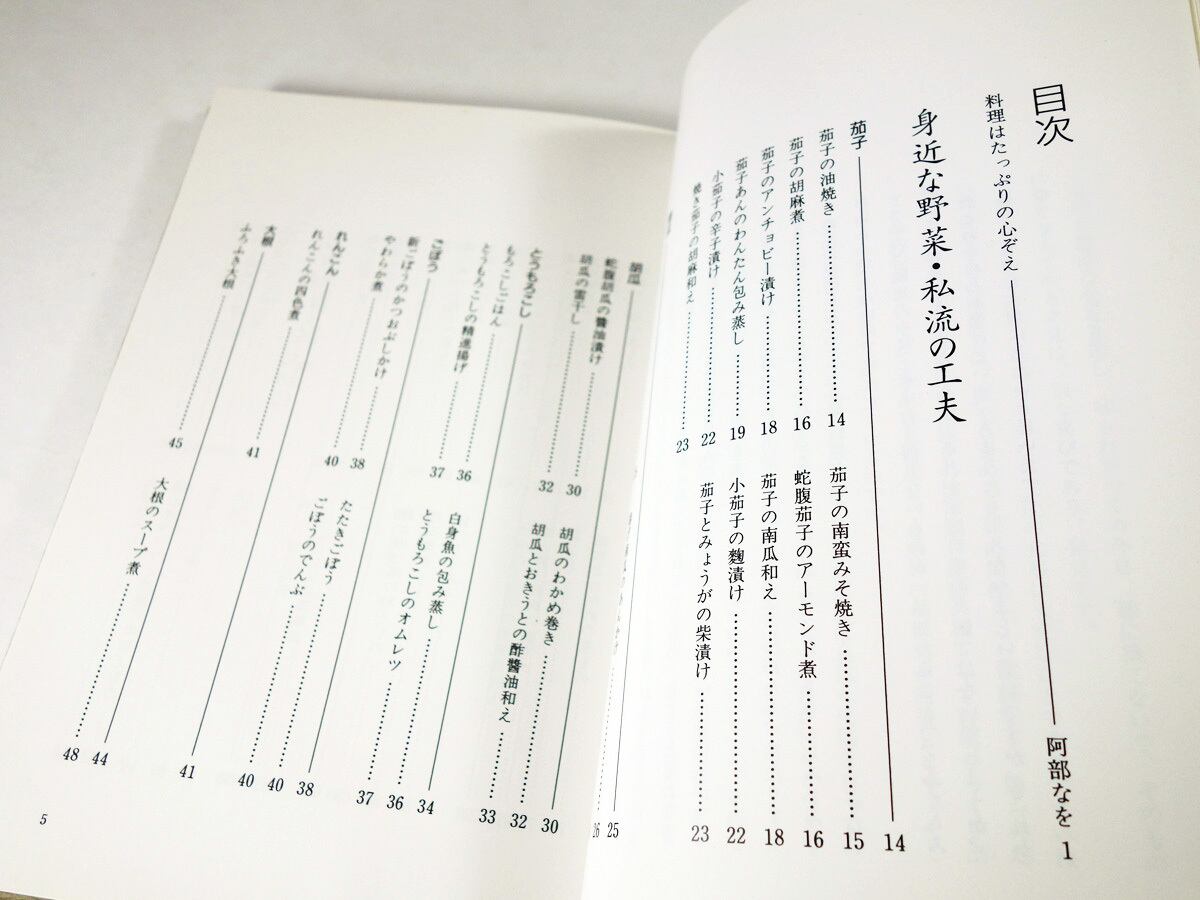 目次
料理はたっぷりの心ぞえ 阿部なを 1
身近な野菜・私流の工夫
茄子 14
茄子の油焼き 14
茄子の南蛮みそ焼き 15
茄子の胡麻煮 16
蛇腹茄子のアーモンド煮 16
茄子のアンチョビー漬け 18
茄子の南瓜和え 18
茄子あんのわんたん包み蒸し 19
小茄子の麴漬け 22
小茄子の辛子漬け 22
茄子とみょうがの柴漬け 23
焼き茄子の胡麻和え 23
25
26
胡瓜 30
蛇腹胡瓜の醬油漬け 30
胡瓜のわかめ巻き 32
胡瓜の雷干し 32
胡瓜とおきうとの酢醬油和え 33
とうもろこし 34
もろこしごはん 36
白身魚の包み蒸し 36
とうもろこしの精進揚げ 37
とうもろこしのオムレツ 37
ごぼう 38
新ごぼうのかつおぶしかけ 38
たたきごぼう 40
やわらか煮 40
ごぼうのでんぶ 40
れんこん 41
れんこんの四色煮 41
大根 44
ふろふき大根 45
大根のスープ煮 48
5